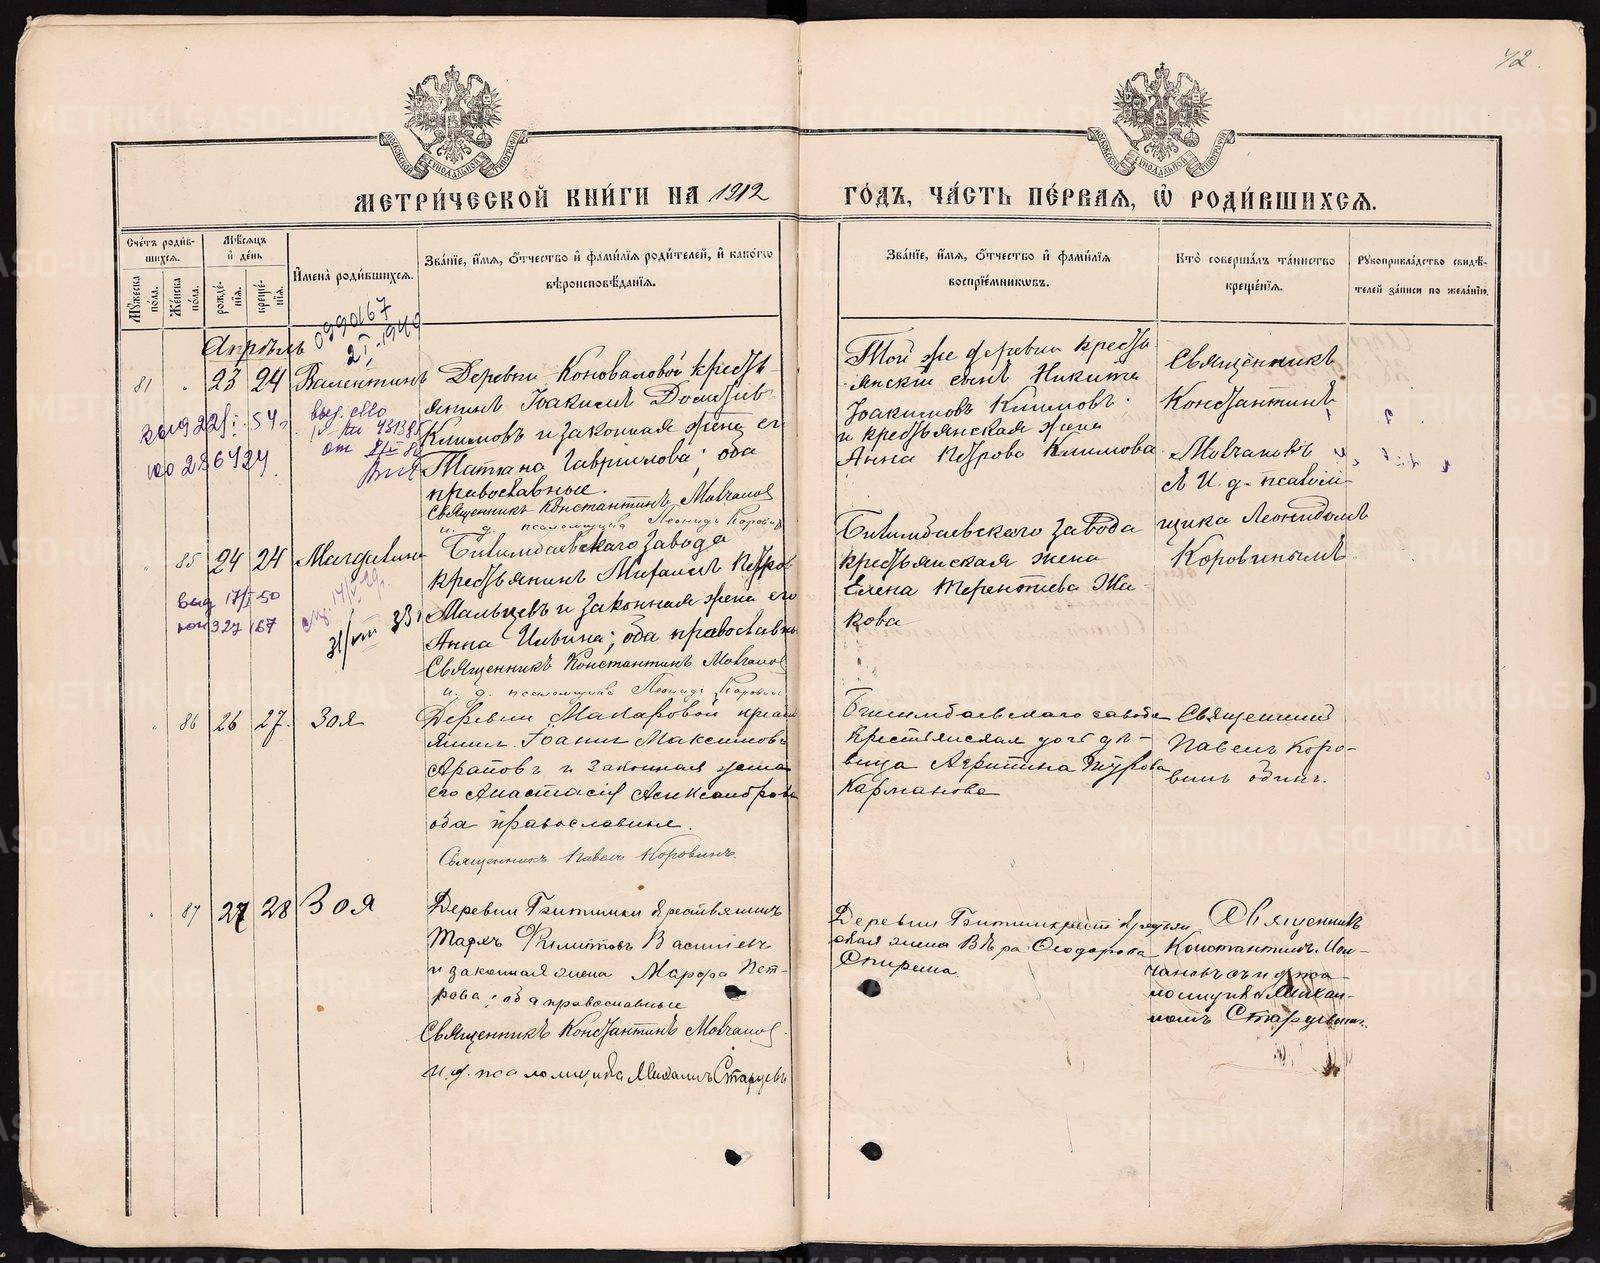 42.
МЕТРИ́ЧЕСКОЙ КНИ́ГИ НА 1912 ГО́ДЪ, ЧА́СТЬ ПЕ́РВАЯ, Ѡ РОДИ́ВШИХСЯ.
Счетъ родившихся.
Мужеска пола.
Женска пола.
Мѣсяцъ и день
рожденія.
крещенія.
Имена родившихся.
Званіе, имя, отчество и фамилія родителей, и какогѡ
вѣроисповѣданія.
Званіе, имя, отчество и фамилія
воспріемникѡвъ.
Кто совершалъ таинство
крещенія.
Рукоприкладство свидѣ-
телей записи по желанію.
0990167
2/I-1940
Апрѣль
81 " 23 24 Валентинъ
выд 22/I 54 г.
юо 286424.
Деревни Коноваловой кресть-
янинъ Іоакимъ
Климовъ и законная жена его
Татіана Гавріилова; оба
православные.
Священникъ Константинъ Молчановъ
и. д. псаломщика Леонидъ Коровинъ
Той же деревни кресть-
янскій сынъ Никита
Іоакимовъ Климовъ
и крестьянская жена
Анна Петрова Климова
Священникъ
Константинъ
Молчановъ
съ и. д. псалом-
щика Леонидомъ
Коровинымъ
" 85 24 24 Магдалина
выд 17/I-50
юо 327167
Билимбаевскаго завода
крестьянинъ Михаилъ Петровъ
Мальцевъ и законная жена его
Анна Ильина; оба православны
Священникъ Константинъ Молчановъ
и. д. псаломщика Леонидъ Коровинъ
Билимбаевскаго завода
крестьянская жена
Елена Терентіева Жа-
кова
" 86 26 27. Зоя
Деревни Макаровой кресть
янинъ Іоаннъ Максимовъ
Араповъ и законная жена
его Анастасія Александрова
оба православные.
Священникъ Павелъ Коровинъ.
Билимбаевскаго завода
крестьянская дочь дѣ-
вица Агриппина Петрова
Карманова
Священникъ
Павелъ Коро-
винъ одинъ.
" 87 27 28 Зоя
Деревни Крестьянинъ
Васильевъ
и законная жена Марфа Пет-
рова; оба православные
Священникъ Константинъ Молчановъ
и. д. псаломщика Михаилъ Старцевъ
Деревни
ская жена Вѣра Ѳеодорова
Спирина.
Священникъ
Константинъ Мол-
чановъ съ и д пса
ломщика Михаи-
ломъ Старцевымъ.